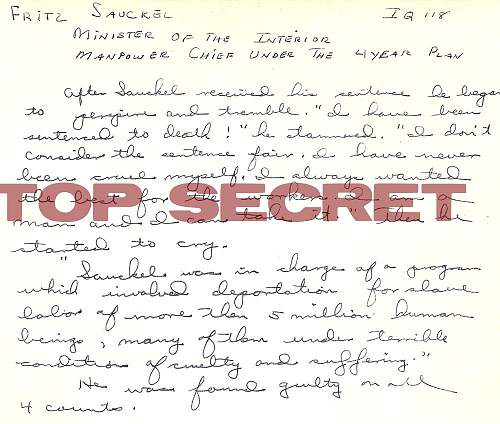 FRITZ SAUCKEL IQ 118
MINISTER OF THE INTERIOR
MANPOWER CHIEF UNDER THE 4 YEAR PLAN
After Sauckel received his sentence he began
to perspire and tremble. "I have been
sentenced to death!" he stammered. "I don't
consider the sentence fair. I have never
been cruel myself. I always wanted
the best for the workers. I am a
TOP SECRET
man and I can take it." Then he
started to cry.
"Sauckel was in charge of a program
which involved deportation for slave
labor of more than 5 million human
beings, many of them under terrible
conditions of cruelty and suffering."
He was found guilty on all
4 counts.